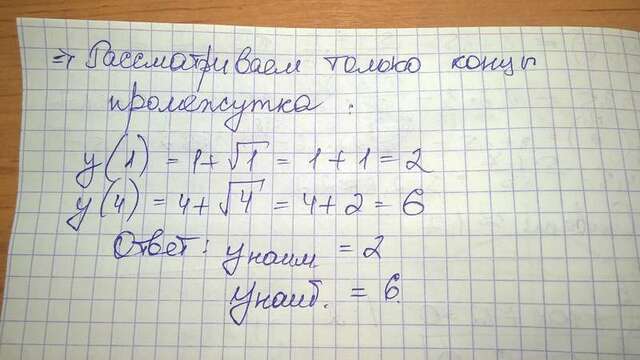 ⇒ Рассматриваем только концы
промежутка:
y(1) = 1+√1 = 1+1 = 2
y(4) = 4+√4 = 4+2 = 6
Ответ: yнаим. = 2
yнаиб. = 6.